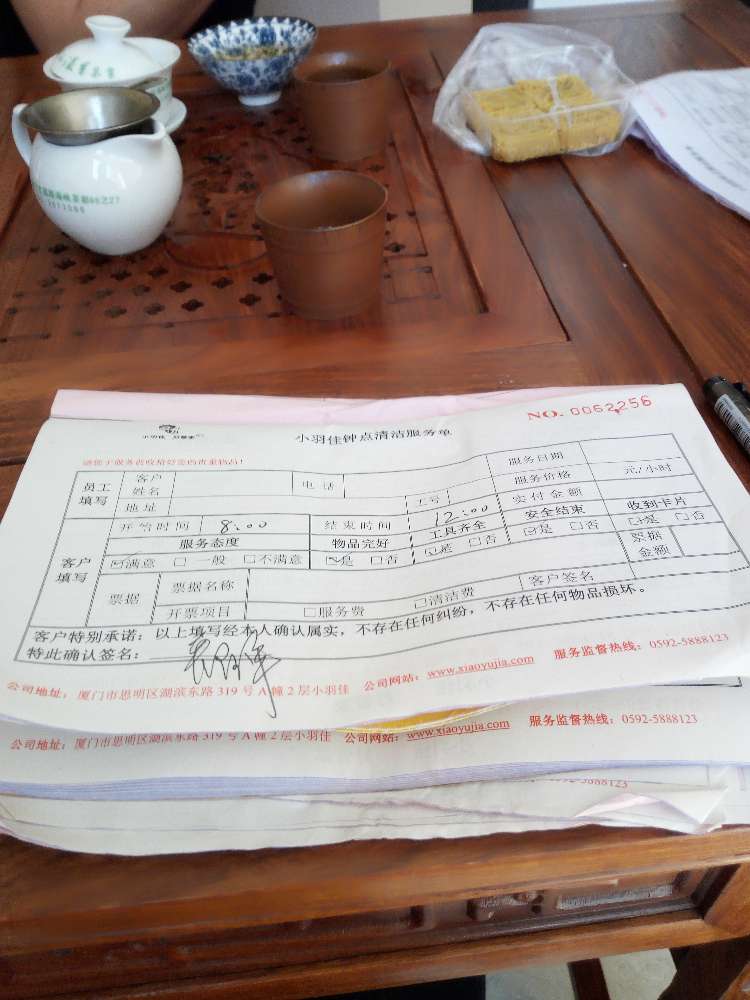 NO. 0062256
小羽佳 好管家
小羽佳钟点清洁服务单
请您于服务前收捡好您的贵重物品!
员工填写 客户姓名 电话 服务日期
地址 工号 服务价格 元/小时
实付金额
客户填写 开始时间 8:00 结束时间 12:00 安全结束 收到卡片
服务态度 物品完好 工具齐全 ☑是 □否 ☑是 □否
☑满意 □一般 □不满意 ☑是 □否 ☑是 □否 票据金额
票据 票据名称 客户签名
开票项目 □服务费 □清洁费
客户特别承诺:以上填写经本人确认属实,不存在任何纠纷,不存在任何物品损坏。
特此确认签名:
公司地址:厦门市思明区湖滨东路 319 号 A 幢 2 层小羽佳 公司网站:www.xiaoyujia.com 服务监督热线:0592-5888123
公司地址:厦门市思明区湖滨东路 319 号 A 幢 2 层小羽佳 公司网站:www.xiaoyujia.com 服务监督热线:0592-5888123
0592-5888123